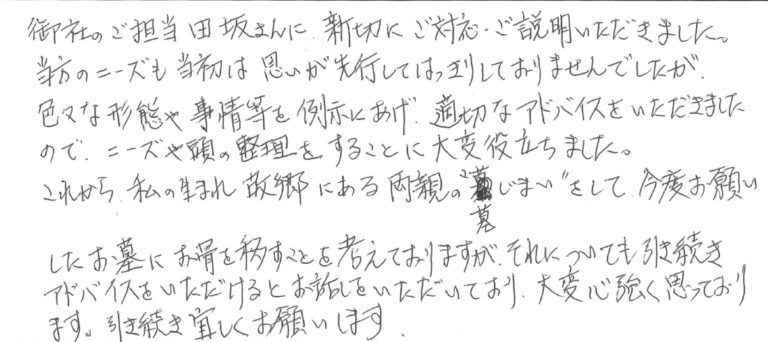 御社のご担当田坂さんに、親切にご対応・ご説明いただきました。
当方のニーズも当初は思いが先行してはっきりしておりませんでしたが、
色々な形態や事情等を例示にあげ、適切なアドバイスをいただきました
ので、ニーズや頭の整理をすることに大変役立ちました。
これから、私の生まれ故郷にある両親の"墓じまい"をして、今度お願い
墓
したお墓にお骨を移すことを考えておりますが、それについても引き続き
アドバイスをいただけるとお話しをいただいており、大変心強く思っており
ます。引き続き宜しくお願いします.